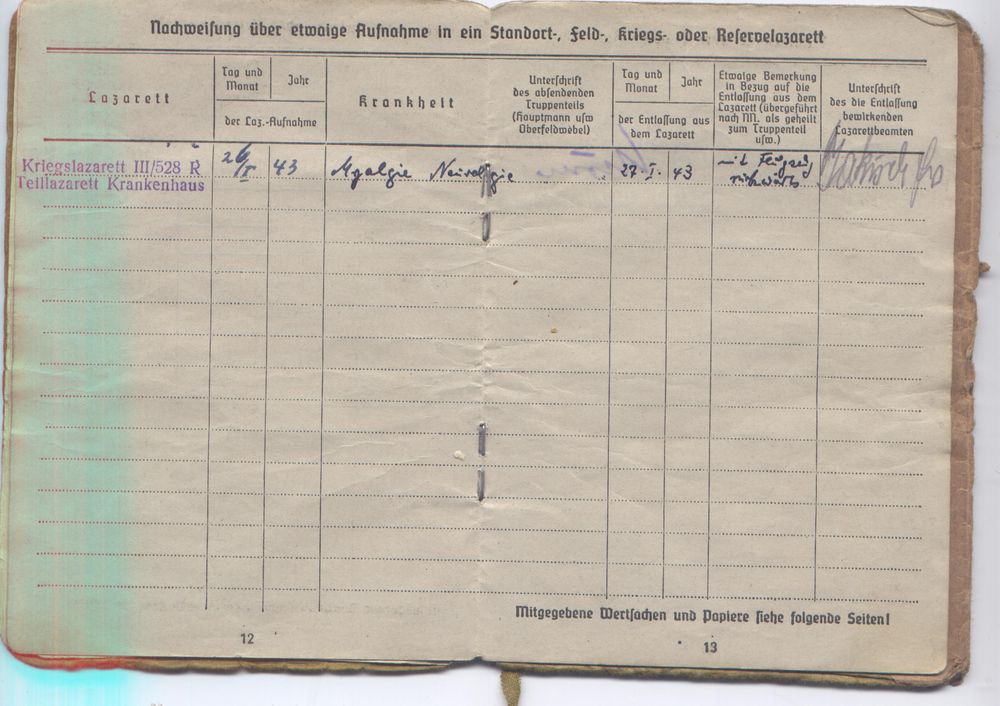 Nachweisung über etwaige Aufnahme in ein Standort-, Feld-, Kriegs- oder Reservelazarett
Lazarett
Tag und
Monat
Jahr
der Laz.-Aufnahme
Krankheit
Unterschrift
des absendenden
Truppenteils
(Hauptmann usw
Oberfeldwebel)
Tag und
Monat
Jahr
der Entlassung aus
dem Lazarett
Etwaige Bemerkung
in Bezug auf die
Entlassung aus dem
Lazarett (übergeführt
nach NN. als geheilt
zum Truppenteil
usw.)
Unterschrift
des die Entlassung
bewirkenden
Lazarettbeamten
Kriegslazarett III/528 R
Teillazarett Krankenhaus
26/I 43 Myalgie Neuralgie 27. I. 43 mit Flugzeug
rückwärts
Mitgegebene Wertsachen und Papiere siehe folgende Seiten!
12
13